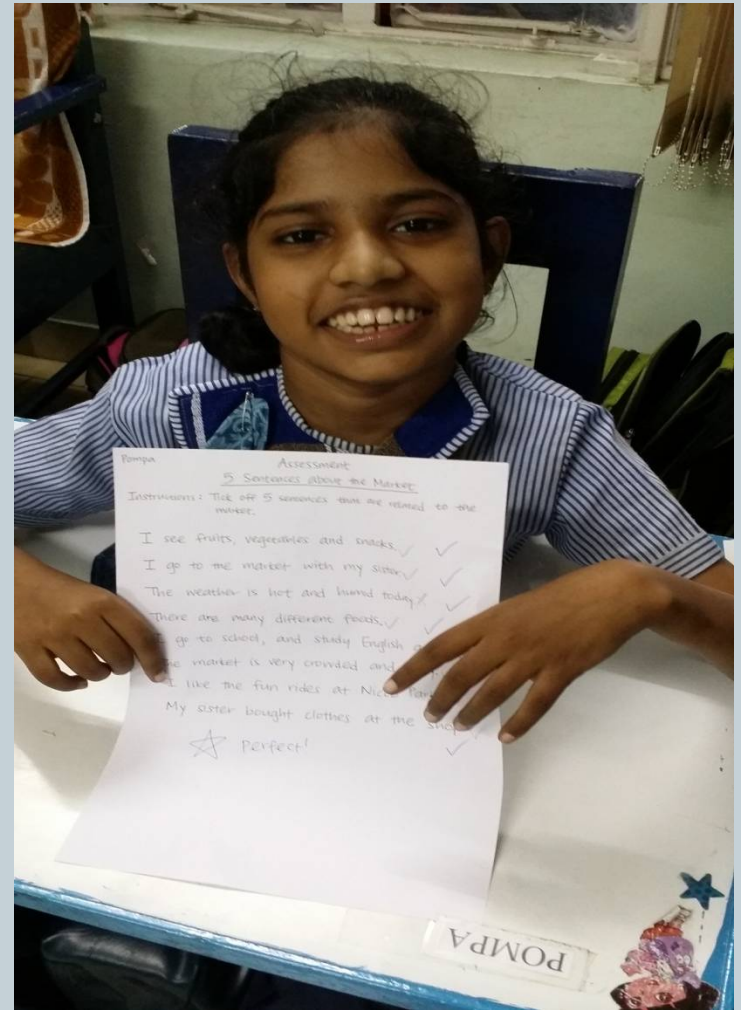 Pompa
Assessment
5 Sentences about the Market
Instructions: Tick off 5 sentences that are related to the
market.
I see fruits, vegetables and snacks. ✓ ✓
I go to the market with my sister ✓ ✓
The weather is hot and humid today X ✓
There are many different foods. ✓ ✓
I go to school, and study English
The market is very crowded and
I like the fun rides at Nicco Park
My sister bought clothes at the shop
☆ Perfect! ✓
POMPA